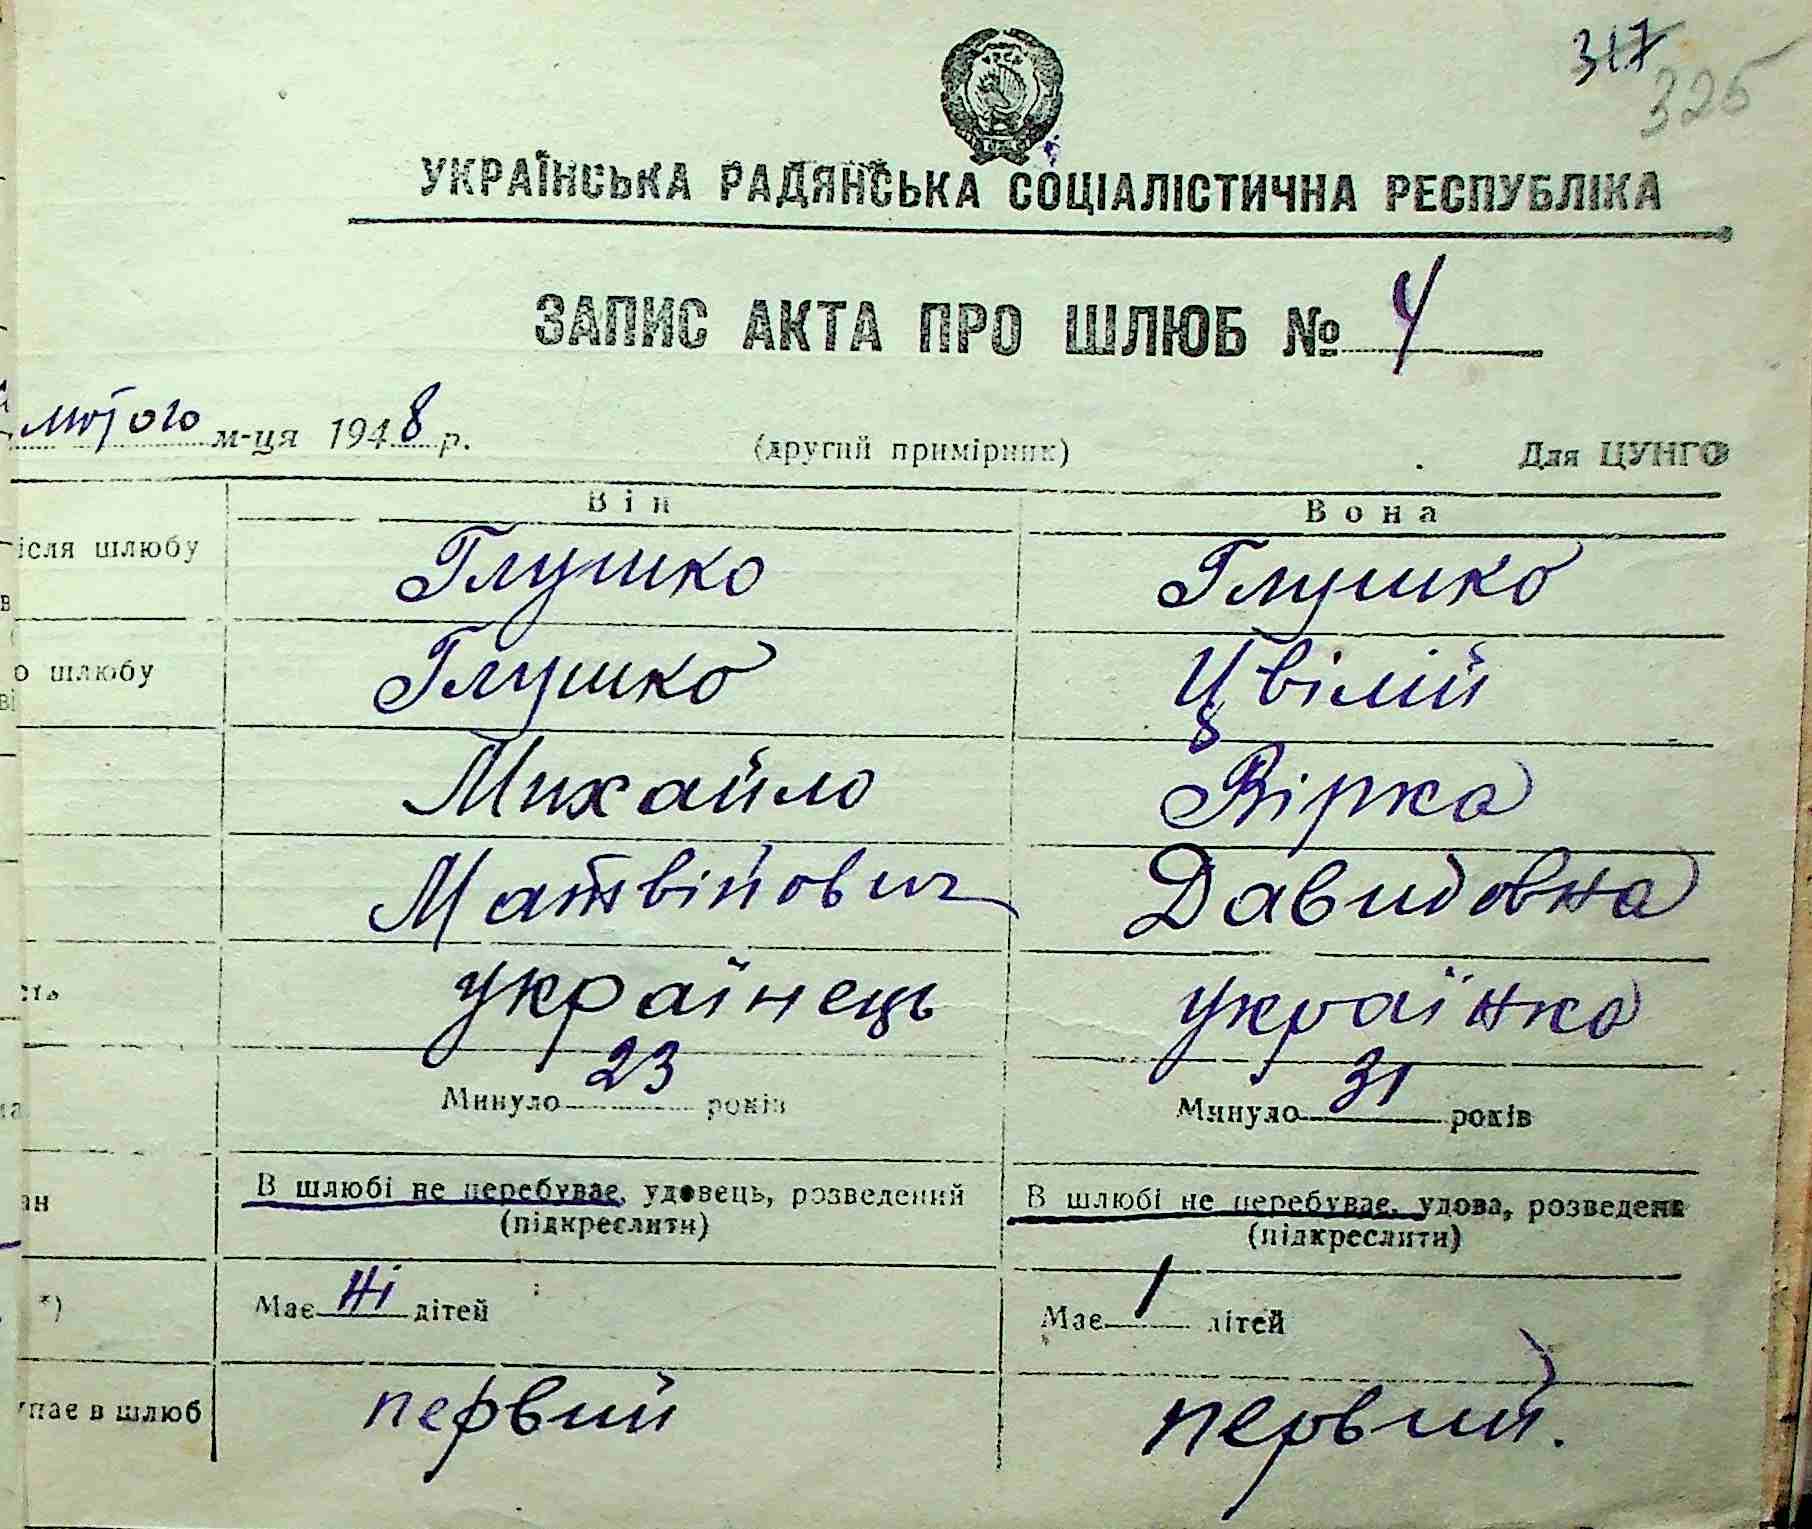 317
325
УКРАЇНСЬКА РАДЯНСЬКА СОЦІАЛІСТИЧНА РЕСПУБЛІКА
ЗАПИС АКТА ПРО ШЛЮБ № 4
лютого м-ця 1948 р. (другий примірник) Для ЦУНГО
Він Вона
ісля шлюбу Глушко Глушко
в
о шлюбу Глушко Цвілій
ві
Михайло Вірка
Матвійович Давидовна
сть українець українка
Минуло 23 років Минуло 31 років
ан В шлюбі не перебуває, удовець, розведений В шлюбі не перебуває, удова, розведена
(підкреслити) (підкреслити)
*) Має ні дітей Має 1 дітей
упає в шлюб первий первий.